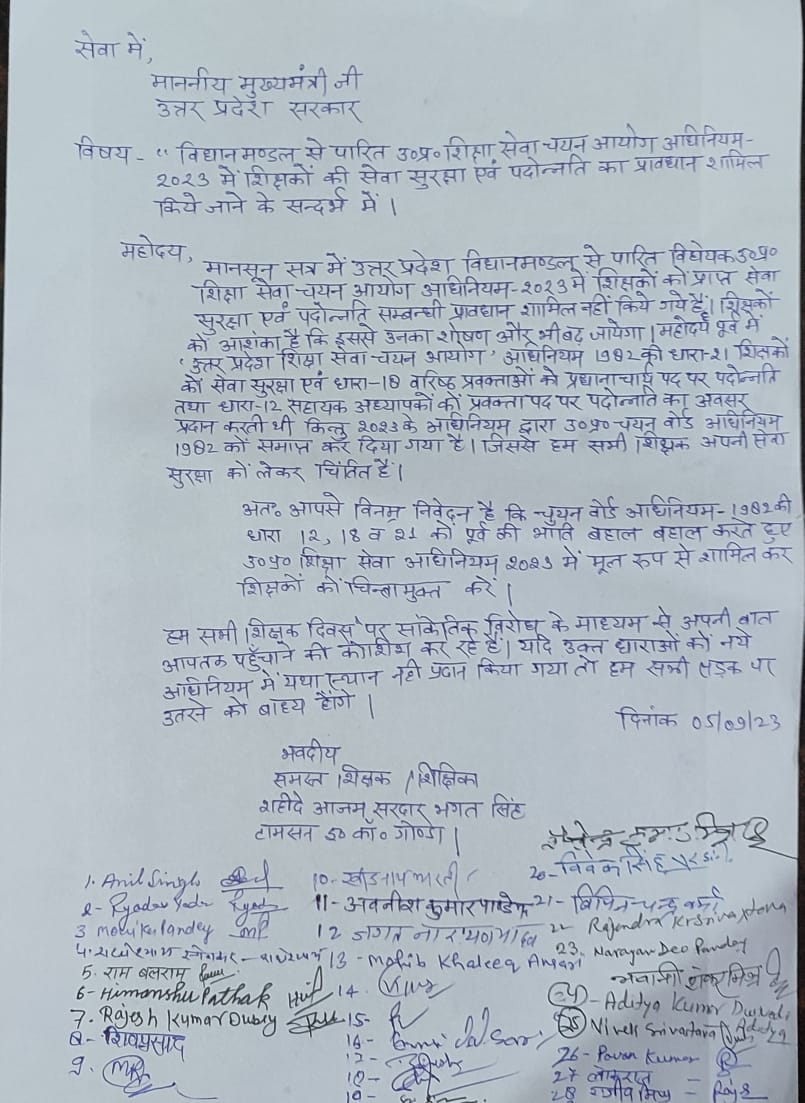 सेवा में,
माननीय मुख्यमंत्री जी
उत्तर प्रदेश सरकार
विषय - “ विधानमण्डल से पारित उ०प्र० शिक्षा सेवा चयन आयोग अधिनियम-
2023 में शिक्षकों की सेवा सुरक्षा एवं पदोन्नति का प्रावधान शामिल
किये जाने के सन्दर्भ में |
महोदय,
मानसून सत्र में उत्तर प्रदेश विधानमण्डल से पारित विधेयक उ०प्र०
शिक्षा सेवा चयन आयोग अधिनियम-2023 में शिक्षकों को प्राप्त सेवा
सुरक्षा एवं पदोन्नति सम्बन्धी प्रावधान शामिल नहीं किये गये हैं| शिक्षकों
को आशंका है कि इससे उनका शोषण और भी बढ़ जायेगा | महोदय पूर्व में
'उत्तर प्रदेश शिक्षा सेवा चयन आयोग' अधिनियम 1982 की धारा-21 शिक्षकों
की सेवा सुरक्षा एवं धारा-18 वरिष्ठ प्रवक्ताओं को प्रधानाचार्य पद पर पदोन्नति
तथा धारा-12 सहायक अध्यापकों को प्रवक्ता पद पर पदोन्नति का अवसर
प्रदान करती थी किन्तु 2023 के अधिनियम द्वारा उ०प्र० चयन वोर्ड अधिनियम
1982 को समाप्त कर दिया गया है | जिससे हम सभी शिक्षक अपनी सेवा
सुरक्षा को लेकर चिंतित हैं |
अतः आपसे विनम्र निवेदन है कि चयन वोर्ड अधिनियम-1982 की
धारा 12, 18 व 21 को पूर्व की भाँति बहाल बहाल करते हुए
उ०प्र० शिक्षा सेवा अधिनियम 2023 में मूल रुप से शामिल कर
शिक्षकों को चिन्तामुक्त करें |
हम सभी शिक्षक दिवस पर सांकेतिक विरोध के माध्यम से अपनी बात
आपतक पहुँचाने की कोशिश कर रहे हैं | यदि उक्त धाराओं को नये
अधिनियम में यथा स्थान नही प्रदान किया गया तो हम सभी सड़क पर
उतरने को बाध्य होंगे |
दिनांक 05/09/23
भवदीय
समस्त शिक्षक / शिक्षिका
शहीदे आजम सरदार भगत सिंह
टामसन इ० कॉ० गोण्डा |
1. Anil Singh
10-
20- विवेक सिंह
2-
11- अवनीश कुमार पाण्डेय
21- विपिन चन्द्र वर्मा
3
12 जगत नारायण
22- Rajendra Kr Srivastava
4.
13- Mohib Khaleeq Ansari
23. Narayan Deo Pandey
5. राम बलराम
14-
24 - Aditya Kumar Dwivedi
6- Himanshu Pathak
15-
25 Vivek Srivastava
7. Rajesh Kumar Dubey
16-
26- Pavan Kumar
8- शिवप्रसाद
17-
27
9.
18-
28
19-